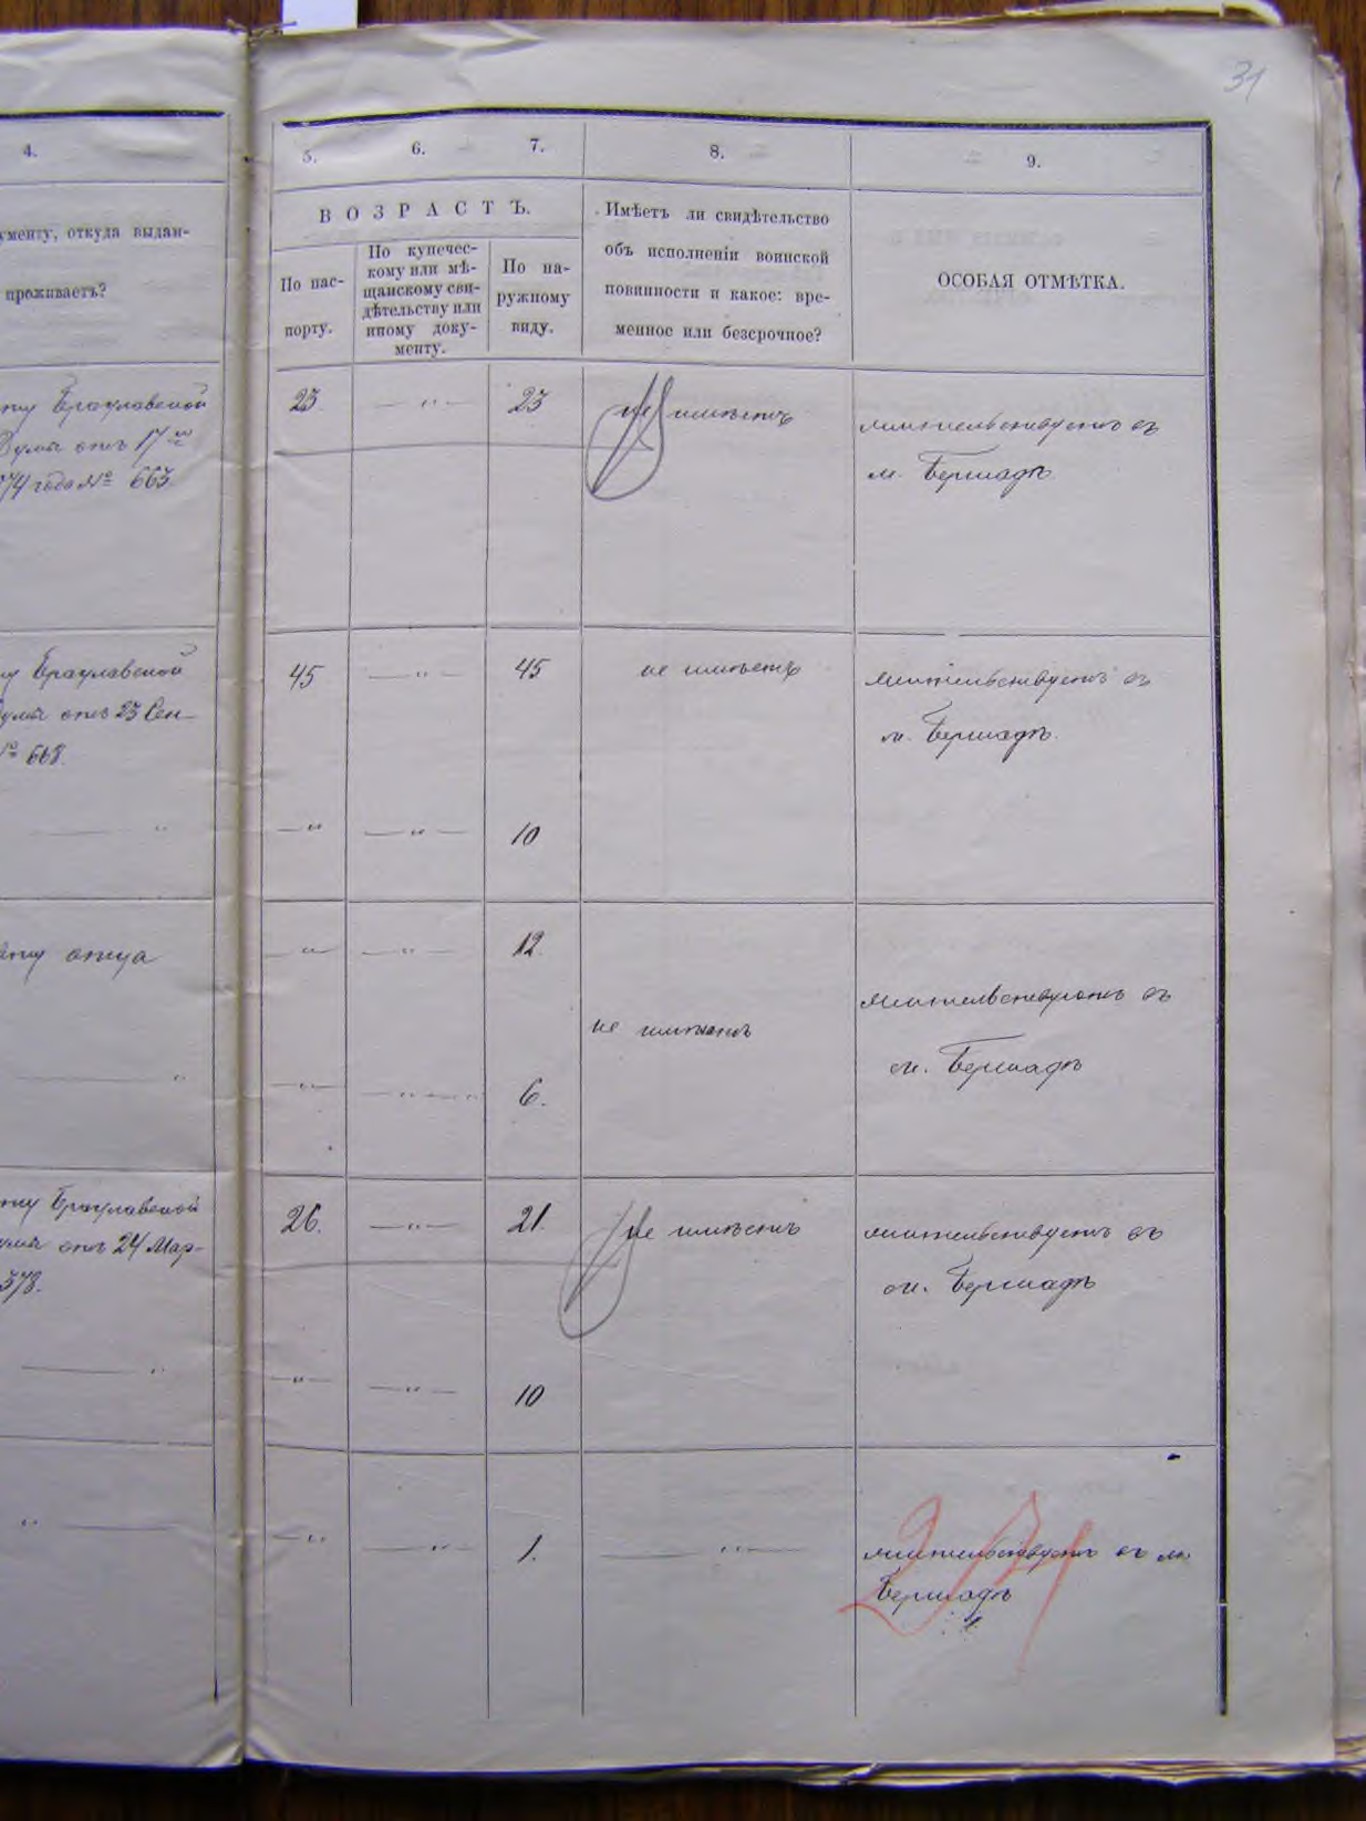 31
4.
5.
6.
7.
8.
9.
ументу, откуда выдан-
проживаетъ?
ВОЗРАСТЪ.
По пас-
порту.
По купечес-
кому или мѣ-
щанскому сви-
дѣтельству или
иному доку-
менту.
По на-
ружному
виду.
Имѣетъ ли свидѣтельство
объ исполненіи воинской
повинности и какое: вре-
менное или безсрочное?
ОСОБАЯ ОТМѢТКА.
Брацлавской
Думы отъ 17го
74 года № 663.
23 — " — 23 не имѣетъ
жительствуетъ въ
м. Бершадѣ
Брацлавской
умы отъ 23 Сен-
№ 668.
45 — " — 45 не имѣетъ
жительствуетъ въ
м. Бершадѣ.
— " — " — 10
отца
— " — " — 12
не имѣютъ
жительствуютъ въ
м. Бершадѣ
— " — " — 6.
Брацлавской
умы отъ 24 Мар-
378.
26. — " — 21. не имѣетъ
жительствуетъ въ
м. Бершадѣ
— " — " — 10
— " — " — 1. — " —
жительствуетъ въ м.
Бершадѣ